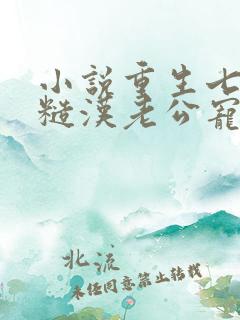 小说重生七
糙汉老公宠
北流
未经同意禁止转载